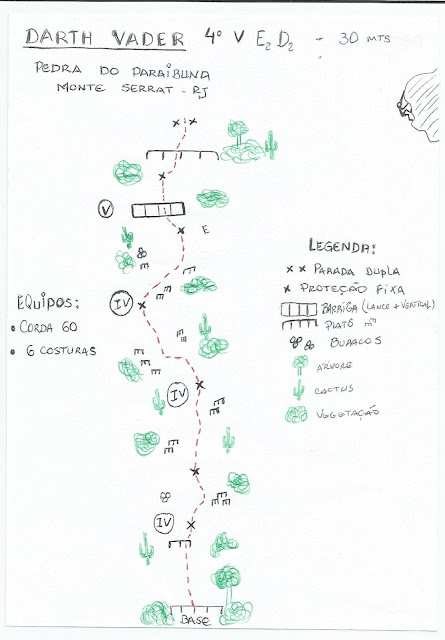 DARTH VADER 4º V E2 D2 - 30 MTS
PEDRA DO PARAIBUNA
MONTE SERRAT - RJ
V
E
LEGENDA:
x x PARADA DUPLA
x PROTEÇÃO FIXA
BARRIGA (LANCE + VERTICAL)
PLATÔ
BURACOS
ÁRVORE
CACTUS
VEGETAÇÃO
EQUIPOS:
• CORDA 60
• 6 COSTURAS
IV
IV
IV
BASE